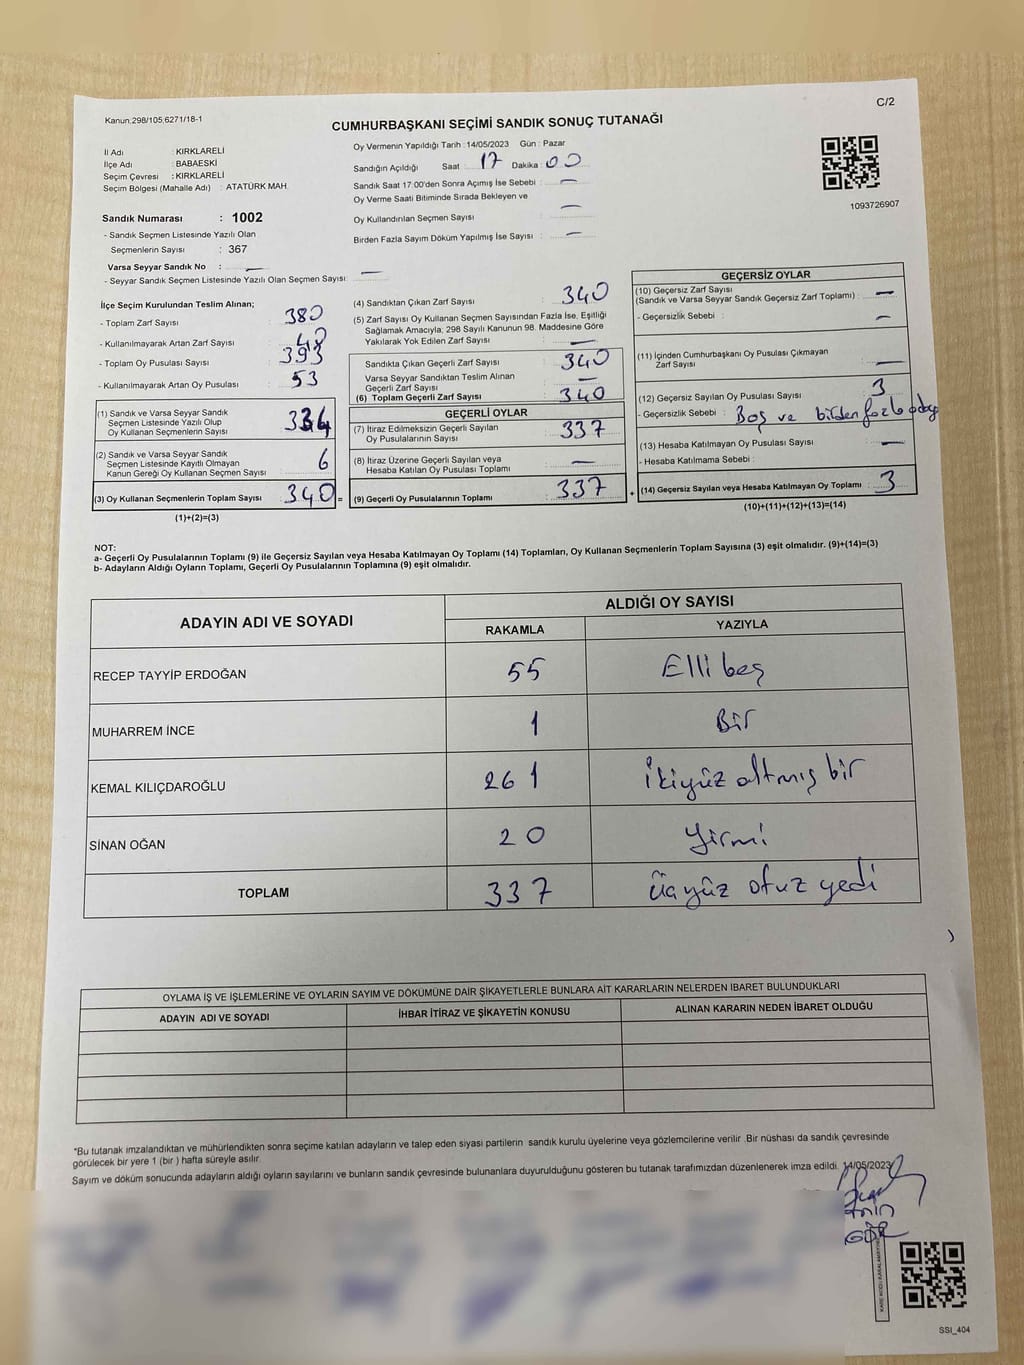 Kanun:298/105,6271/18-1
C/2
CUMHURBAŞKANI SEÇİMİ SANDIK SONUÇ TUTANAĞI
İl Adı : KIRKLARELİ
İlçe Adı : BABAESKİ
Seçim Çevresi : KIRKLARELİ
Seçim Bölgesi (Mahalle Adı) : ATATÜRK MAH.
Sandık Numarası : 1002
- Sandık Seçmen Listesinde Yazılı Olan
Seçmenlerin Sayısı : 367
Varsa Seyyar Sandık No : —
- Seyyar Sandık Seçmen Listesinde Yazılı Olan Seçmen Sayısı: —
Oy Vermenin Yapıldığı Tarih :14/05/2023 Gün : Pazar
Sandığın Açıldığı Saat : 17 Dakika : 00
Sandık Saat 17:00'den Sonra Açımış İse Sebebi : —
Oy Verme Saati Bitiminde Sırada Bekleyen ve
Oy Kullandırılan Seçmen Sayısı : —
Birden Fazla Sayım Döküm Yapılmış İse Sayısı : —
1093726907
İlçe Seçim Kurulundan Teslim Alınan;
- Toplam Zarf Sayısı 380
- Kullanılmayarak Artan Zarf Sayısı 40
- Toplam Oy Pusulası Sayısı 393
- Kullanılmayarak Artan Oy Pusulası 53
(1) Sandık ve Varsa Seyyar Sandık
Seçmen Listesinde Yazılı Olup
Oy Kullanan Seçmenlerin Sayısı 334
(2) Sandık ve Varsa Seyyar Sandık
Seçmen Listesinde Kayıtlı Olmayan
Kanun Gereği Oy Kullanan Seçmen Sayısı 6
(3) Oy Kullanan Seçmenlerin Toplam Sayısı 340 =
(1)+(2)=(3)
(4) Sandıktan Çıkan Zarf Sayısı : 340
(5) Zarf Sayısı Oy Kullanan Seçmen Sayısından Fazla İse, Eşitliği
Sağlamak Amacıyla; 298 Sayılı Kanunun 98. Maddesine Göre
Yakılarak Yok Edilen Zarf Sayısı : —
Sandıkta Çıkan Geçerli Zarf Sayısı : 340
Varsa Seyyar Sandıktan Teslim Alınan
Geçerli Zarf Sayısı : —
(6) Toplam Geçerli Zarf Sayısı : 340
GEÇERLİ OYLAR
(7) İtiraz Edilmeksizin Geçerli Sayılan
Oy Pusulalarının Sayısı : 337
(8) İtiraz Üzerine Geçerli Sayılan veya
Hesaba Katılan Oy Pusulası Toplamı : —
(9) Geçerli Oy Pusulalarının Toplamı : 337 +
GEÇERSİZ OYLAR
(10) Geçersiz Zarf Sayısı
(Sandık ve Varsa Seyyar Sandık Geçersiz Zarf Toplamı) : —
- Geçersizlik Sebebi : —
(11) İçinden Cumhurbaşkanı Oy Pusulası Çıkmayan
Zarf Sayısı : —
(12) Geçersiz Sayılan Oy Pusulası Sayısı : 3
- Geçersizlik Sebebi : Boş ve birden fazla aday
(13) Hesaba Katılmayan Oy Pusulası Sayısı : —
- Hesaba Katılmama Sebebi :
(14) Geçersiz Sayılan veya Hesaba Katılmayan Oy Toplamı : 3
(10)+(11)+(12)+(13)=(14)
NOT:
a- Geçerli Oy Pusulalarının Toplamı (9) ile Geçersiz Sayılan veya Hesaba Katılmayan Oy Toplamı (14) Toplamları, Oy Kullanan Seçmenlerin Toplam Sayısına (3) eşit olmalıdır. (9)+(14)=(3)
b- Adayların Aldığı Oyların Toplamı, Geçerli Oy Pusulalarının Toplamına (9) eşit olmalıdır.
ADAYIN ADI VE SOYADI ALDIĞI OY SAYISI
RAKAMLA YAZIYLA
RECEP TAYYİP ERDOĞAN 55 Elli beş
MUHARREM İNCE 1 Bir
KEMAL KILIÇDAROĞLU 261 İkiyüz altmış bir
SİNAN OĞAN 20 Yirmi
TOPLAM 337 Üçyüz otuz yedi
OYLAMA İŞ VE İŞLEMLERİNE VE OYLARIN SAYIM VE DÖKÜMÜNE DAİR ŞİKAYETLERLE BUNLARA AİT KARARLARIN NELERDEN İBARET BULUNDUKLARI
ADAYIN ADI VE SOYADI İHBAR İTİRAZ VE ŞİKAYETİN KONUSU ALINAN KARARIN NEDEN İBARET OLDUĞU
*Bu tutanak imzalandıktan ve mühürlendikten sonra seçime katılan adayların ve talep eden siyasi partilerin sandık kurulu üyelerine veya gözlemcilerine verilir .Bir nüshası da sandık çevresinde
görülecek bir yere 1 (bir ) hafta süreyle asılır.
Sayım ve döküm sonucunda adayların aldığı oyların sayılarını ve bunların sandık çevresinde bulunanlara duyurulduğunu gösteren bu tutanak tarafımızdan düzenlenerek imza edildi. 14/05/2023
SSI_404